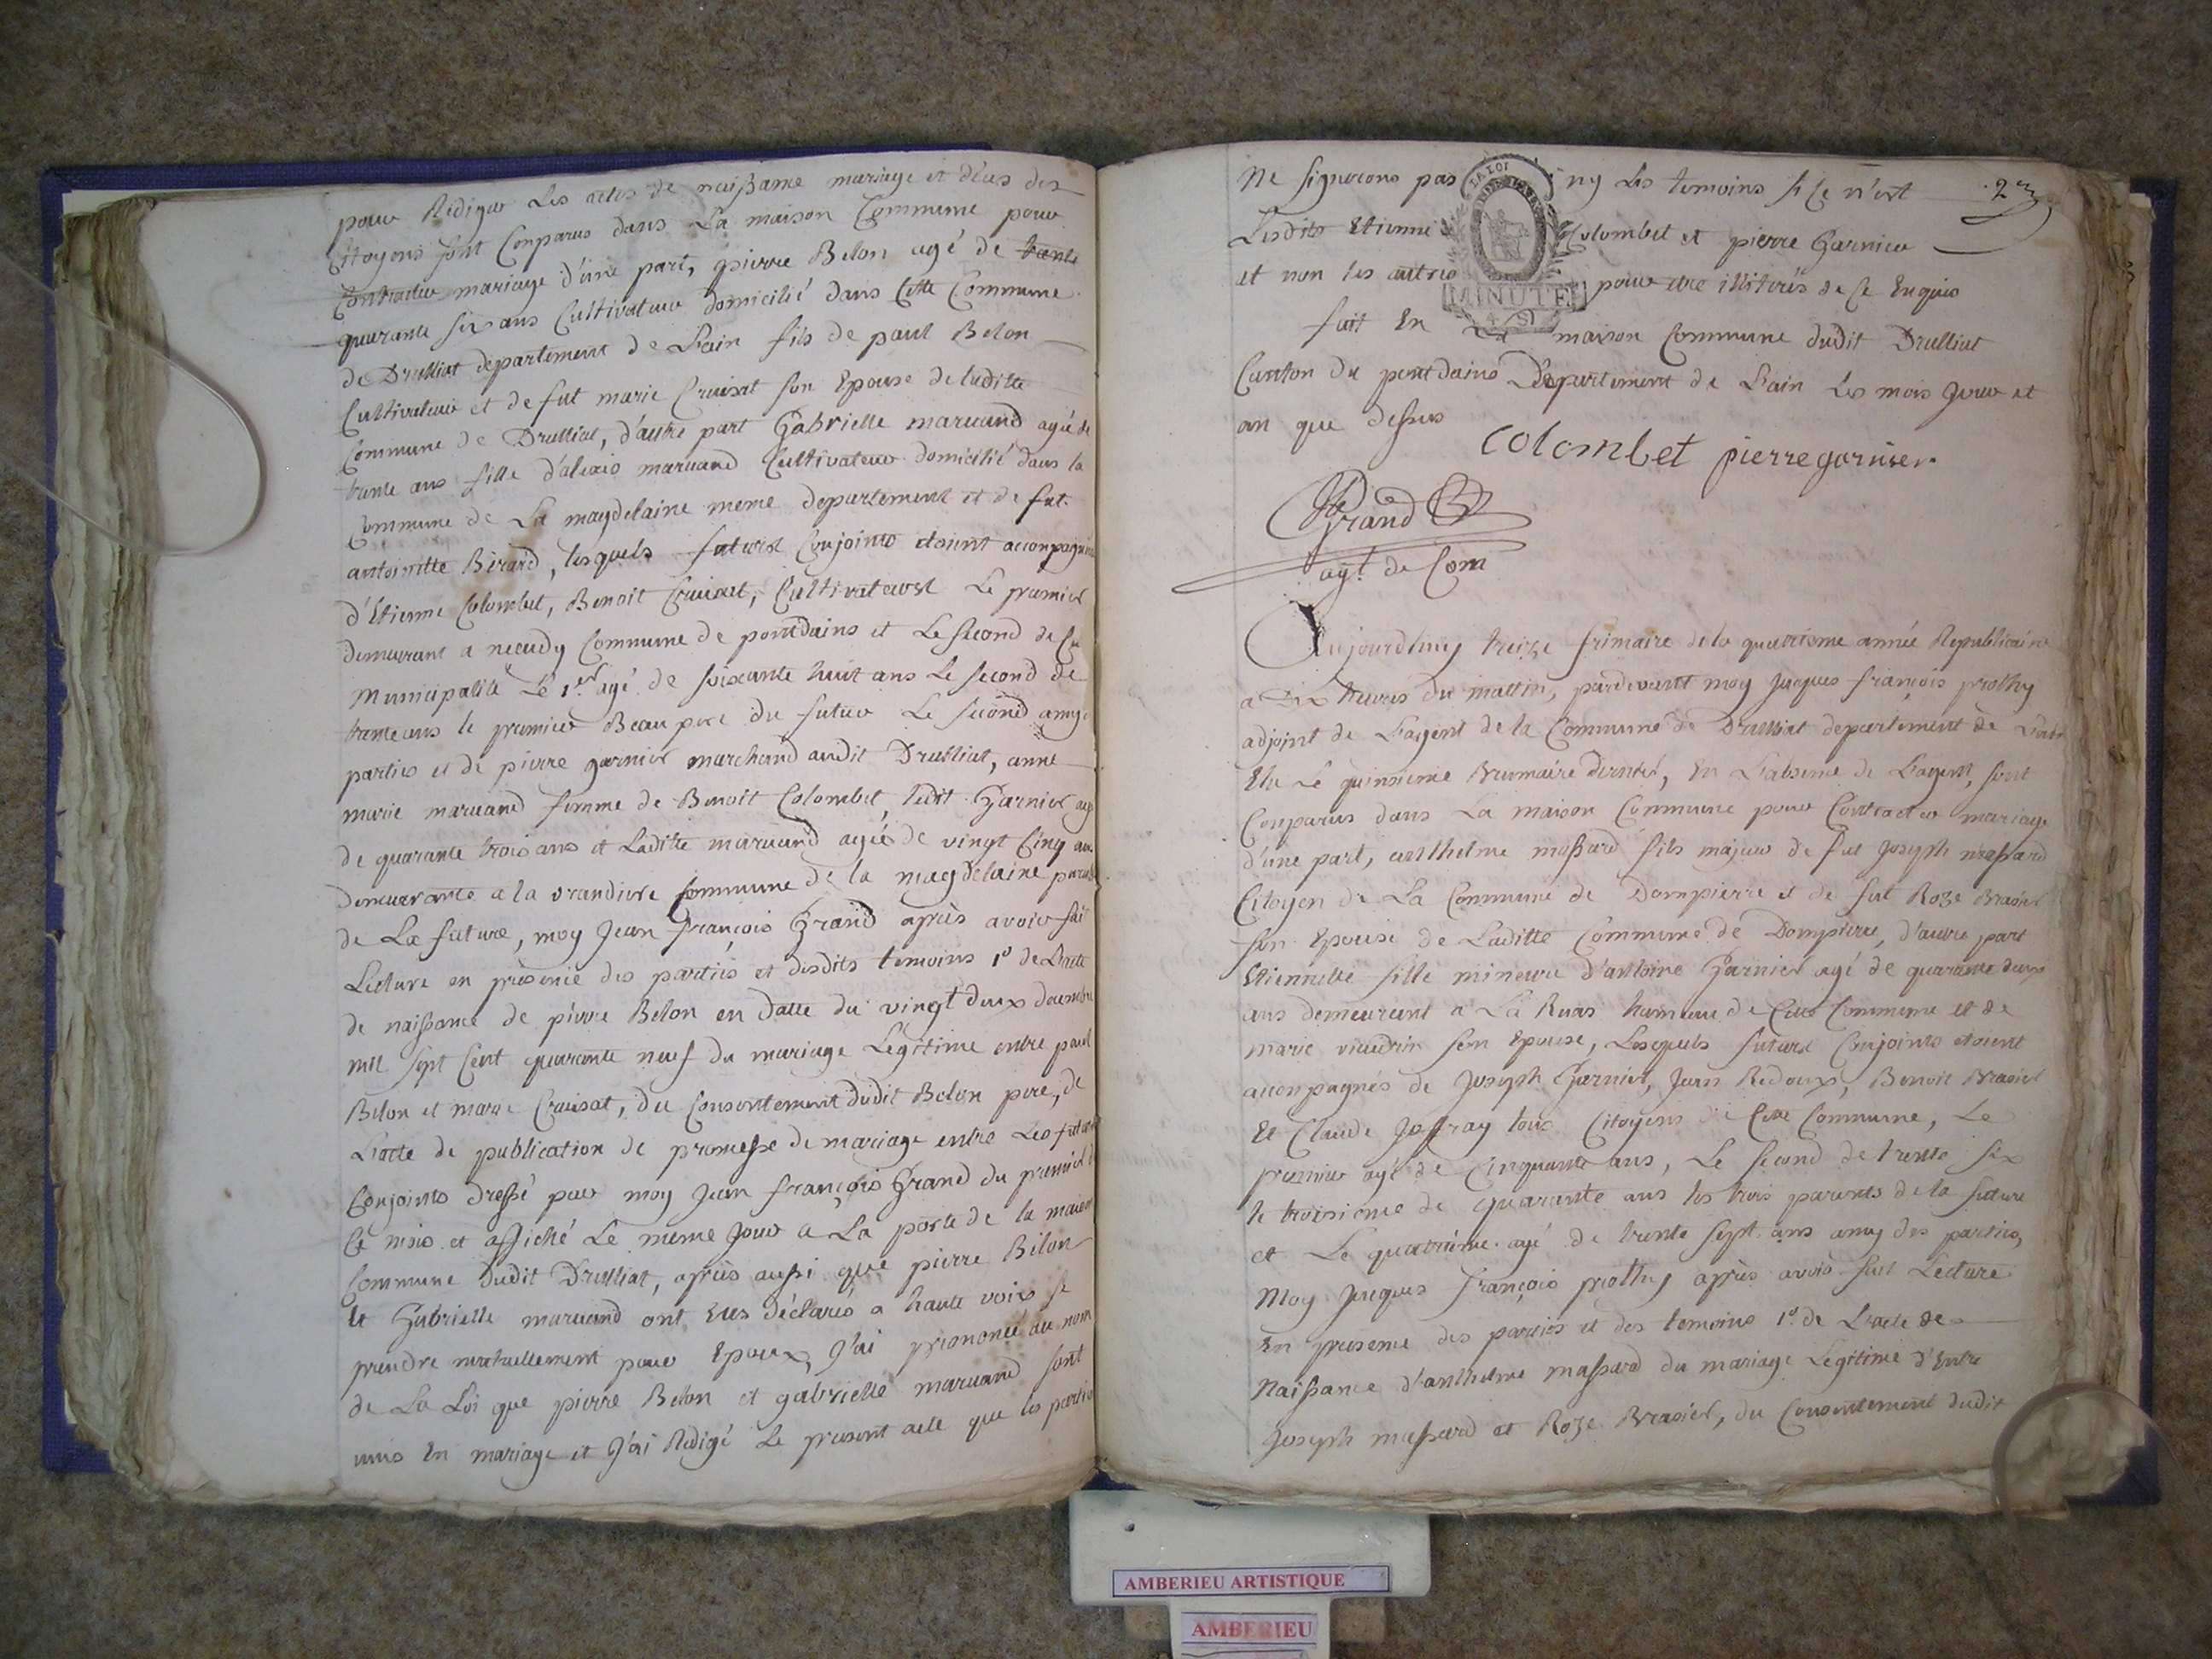 pour Rédiger Les actes de naissance mariage et décès des
Citoyens sont Conparus dans La maison Commune pour
Contracter mariage d'une part, pierre Belon agé de trente
quarante six ans Cultivateur domicilié dans Cette Commune
de Druilliat departement de L'ain fils de paul Belon
Cultivateur et de fut marie Cruisat son Epouse de laditte
Commune de Druilliat, d'autre part Gabrielle maruand agée de
trente ans fille d'alexis maruand Cultivateur domicilié dans la
Commune de La magdelaine meme departement et de fut
antoinette Bérard, lesquels futurs Conjoints étoient accompagnés
d'Etienne Colombet, Benoit Cruisat, Cultivateurs Le premier
demeurant a neeudy Commune de pontdains et Le second de
municipalité Le 1.er agé de soixante huit ans Le second de
trente ans le premier Beau pere du futur Le second amy
parties et de pierre garnier marchand audit Druilliat, anne
marie maruand femme de Benoit Colombet, ledit Garnier agé
de quarante trois ans et Laditte maruand agée de vingt Cinq ans
demeurante a la Commune de la magdelaine
de La future, moy Jean françois Grand après avoir fait
Lecture en présence des parties et desdits temoins 1° de L'acte
de naissance de pierre Belon en datte du vingt deux decembre
mil sept Cent quarante neuf du mariage Légitime entre paul
Belon et marie Cruisat, du Consentement dudit Belon pere, de
L'acte de publication de promesse de mariage entre Les futurs
Conjoints dressé par moy Jean françois Grand du premier
Ce mois et affiché Le meme Jour a La porte de la maison
Commune dudit Druilliat, après aussi que pierre Belon
et Gabrielle maruand ont Eus déclarés a haute voix se
prendre mutuellement pour Epoux, J'ai prononcé au nom
de La Loi que pierre Belon et gabrielle maruand sont
unis En mariage et J'ai Rédigé Le present acte que les parties
2
Ne signerons pas ny Les temoins si Ce n'est
LA LOI
Lesdits Etienne Colombet et pierre Garnier
et non les autres pour etre illiterés de Ce Enquis
MINUTE
fait En La maison Commune dudit Druilliat
Canton du pontdains Département de L'ain Les mois Jour et
an que dessus
Colombet pierre garnier
Grand
agt. de Com
Aujourdhuy treize frimaire de la quatrieme année Republicaine
a Dix heures du mattin, pardevant moy Jacques françois prothy
adjoint de L'agent de la Commune de Druilliat departement de L'ain
Elu Le quinsieme Brumaire dernier, En L'absence de L'agent, sont
Conparus dans La maison Commune pour Contracter mariage
d'une part, anthelme massard fils majeur de fut Joseph massard
Citoyen de La Commune de Dompierre et de fut Roze Brasier
son Epouse de Laditte Commune de Dompierre, d'autre part
Etiennette fille mineure d'antoine Garnier agé de quarante deux
ans demeurant a La Ruas hameau de Cette Commune et de
marie viaudrin son Epouse, Lesquels futurs Conjoints etoient
acconpagnés de Joseph Garnier, Jean Redoux, Benoit Brasier
Et Claude Joffray tous Citoyens de Cette Commune, Le
premier agé de Cinquante ans, Le second de trente six
le troisieme de quarante ans les trois parents de la future
et Le quatrième agé de trente sept ans amy des parties,
Moy Jacques françois prothy après avoir fait Lecture
En presence des parties et des temoins 1° de L'acte de
Naissance d'anthelme massard du mariage Legitime d'Entre
Joseph massard et Roze Brasier, du Consentement dudit
AMBERIEU ARTISTIQUE
AMBERIEU